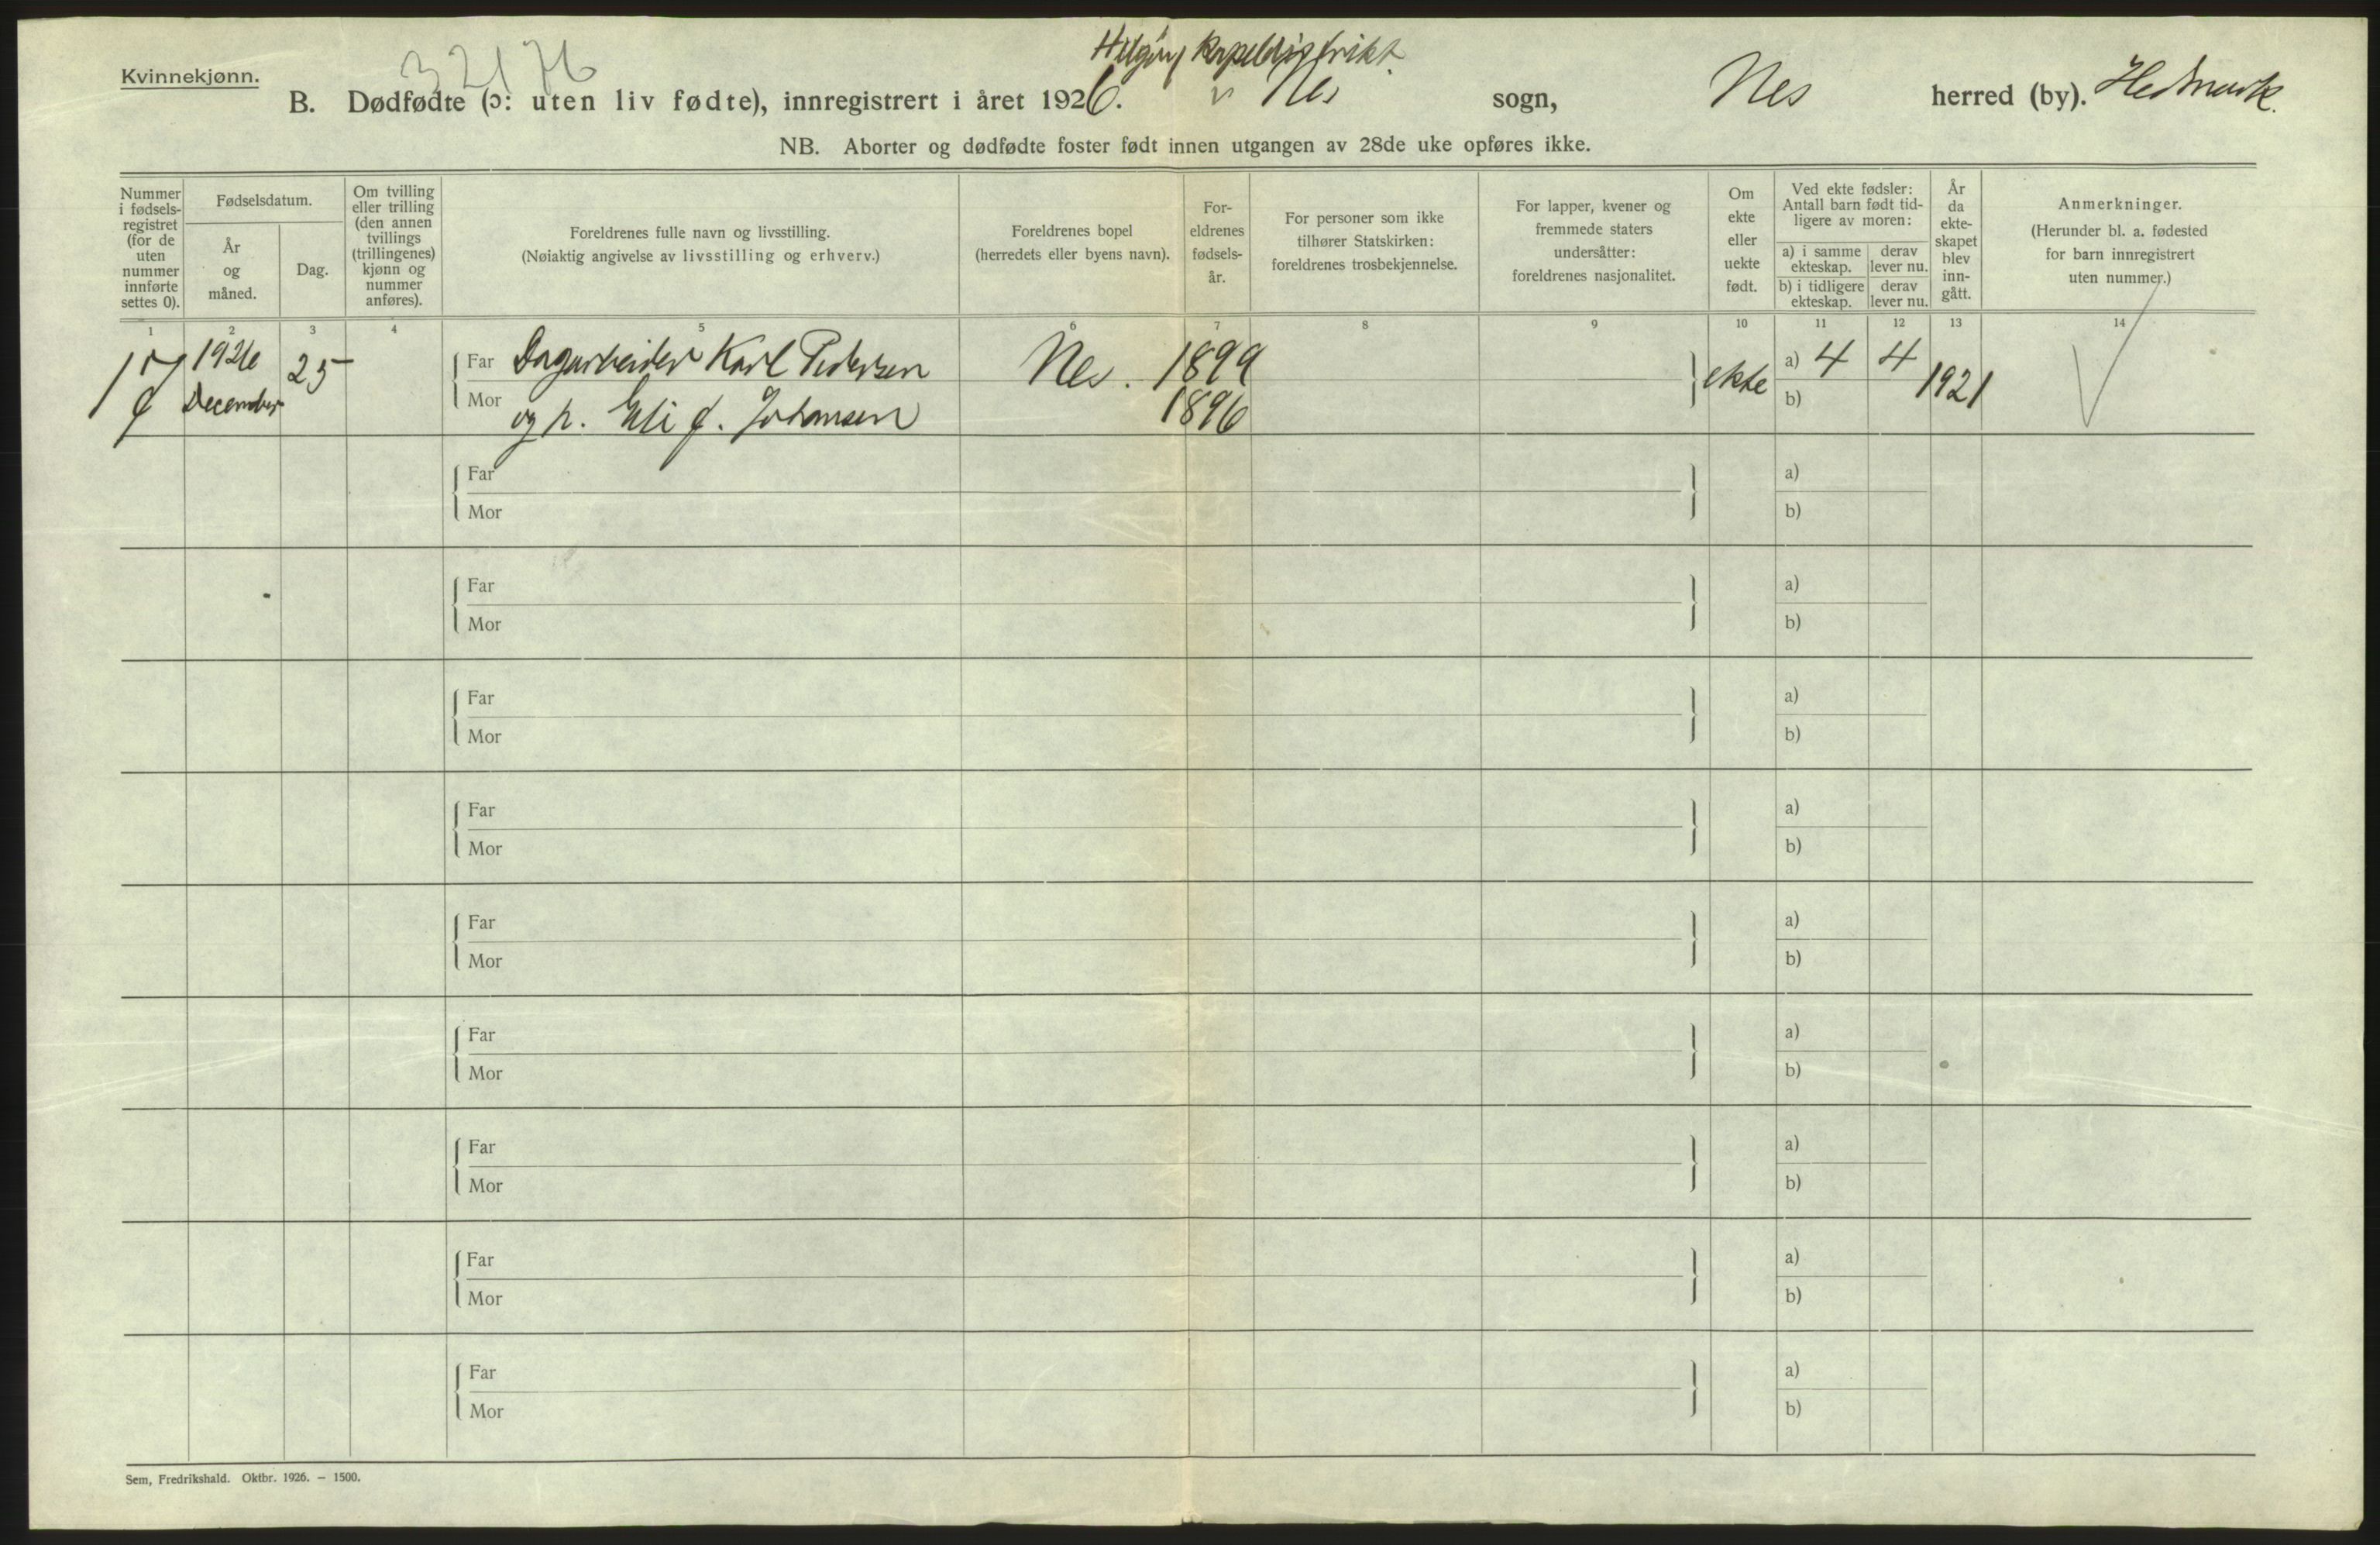 Kvinnekjønn.
32176
Helgøy kapeldistrikt
B. Dødfødte (ɔ: uten liv fødte), innregistrert i året 1926. v Nes sogn, Nes herred (by). Hedmark.
NB. Aborter og dødfødte foster født innen utgangen av 28de uke opføres ikke.
Nummer
i fødsels-
registret
(for de
uten
nummer
innførte
settes 0).
Fødselsdatum.
År
og
måned.
Dag.
Om tvilling
eller trilling
(den annen
tvillings
(trillingenes)
kjønn og
nummer
anføres).
Foreldrenes fulle navn og livsstilling.
(Nøiaktig angivelse av livsstilling og erhverv.)
Foreldrenes bopel
(herredets eller byens navn).
For-
eldrenes
fødsels-
år.
For personer som ikke
tilhører Statskirken:
foreldrenes trosbekjennelse.
For lapper, kvener og
fremmede staters
undersåtter:
foreldrenes nasjonalitet.
Om
ekte
eller
uekte
født.
Ved ekte fødsler:
Antall barn født tid-
ligere av moren:
a) i samme
ekteskap.
derav
lever nu.
b) i tidligere
ekteskap.
derav
lever nu.
År
da
ekte-
skapet
blev
inn-
gått.
Anmerkninger.
(Herunder bl. a. fødested
for barn innregistrert
uten nummer.)
1 2 3 4 5 6 7 8 9 10 11 12 13 14
17 1926 25 Far Dagarbeider Karl Pedersen Nes. 1899 ekte a) 4 4 1921
December Mor og h. Eli f. Johansen 1896 b)
Far a)
Mor b)
Far a)
Mor b)
Far a)
Mor b)
Far a)
Mor b)
Far a)
Mor b)
Far a)
Mor b)
Far a)
Mor b)
Far a)
Mor b)
Far a)
Mor b)
Sem, Fredrikshald. Oktbr. 1926. – 1500.